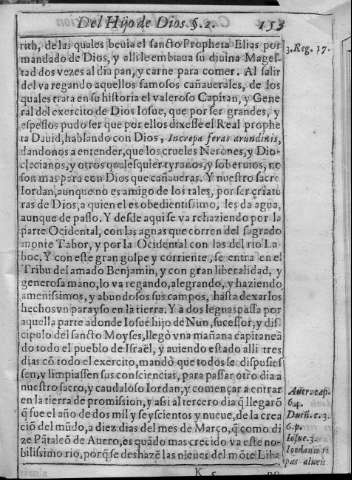 Del Hijo de Dios §. 2. 153
rith, de las quales beuia el sancto Propheta Elias por
mandado de Dios, y alli le embiaua su diuina Mages-
tad dos vezes al dia pan, y carne para comer. Al salir
del va regando aquellos famosos cañauerales, de los
quales trata en su historia el valeroso Capitan, y Gene
ral del exercito de Dios Iosue, que por ser grandes, y
espessos pudo ser que por ellos dixesse el Real prophe
ta Dauid, hablando con Dios, Increpa feras arundinis,
dandonos a entender, que los crueles Nerones, y Dio-
clecianos, y otros qualesquier tyranos, y soberuios, no
son mas para con Dios que cañaueras. Y nuestro sacro
Iordan, aunque no es amigo de los tales, por ser criatu
ras de Dios, a quien el es obedientissimo, les da agua,
aunque de passo. Y desde aqui se va rehaziendo por la
parte Ocidental, con las aguas que corren del sagrado
monte Tabor, y por la Ocidental con las del rio Ia-
boc. Y con este gran golpe y corriente, se entra en el
Tribu del amado Benjamin, y con gran liberalidad, y
generosa mano, lo va regando, alegrando, y haziendo
amenissimos, y abundosos sus campos, hasta dexarlos
hechos vn parayso en la tierra. Y a dos leguas passa por
aquella parte adonde Iosue hijo de Nun, sucessor, y dis
cipulo del sancto Moyses, llegò vna mañana capitanea
do todo el pueblo de Israël, y auiendo estado alli tres
dias cō todo el exercito, mandò que todos se dispusies
sen, y limpiassen sus consciencias, para passar otro dia a
nuestro sacro, y caudaloso Iordan, y començar a entrar
en la tierra de promission, y assi al tercero dia q̄ llegarō
q̄ fue el año de dos mil y seyscientos y nueue, de la crea
ciō del mūdo, a diez dias del mes de Março, q̄ como di
ze Pātaleō de Auero, es quādo mas crecido va este no-
bilissimo rio, porq̄ se deshazē las nieues del mōte Liba
K 5
3. Reg. 17.
cap.
64.
c. 3.
6. p.
Iosue. 3.
Iordanis ri
pas aluei